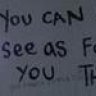 YOU CAN
see as F
YOU TH